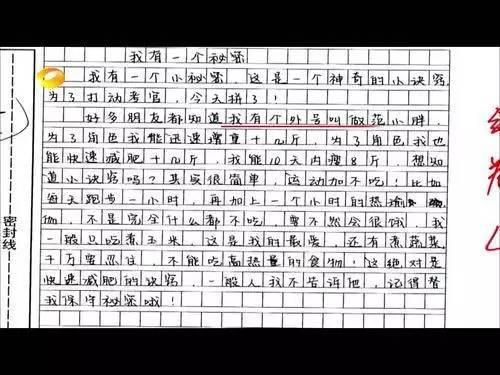 我有一个秘密
我有一个小秘密,这是一个神奇的小诀窍,
为了打动考官,今天拼了!
好多朋友都知道我有个外号叫做范小胖,
为了角色我能迅速增重十几斤,为了角色我也
能快速减肥十几斤,我能10天内瘦8斤,想知
道小诀窍吗?其实很简单,运动加不吃!比如
每天跑步一小时,再加上一个小时的热瑜
伽,不是完全什么都不吃,要不然会很饿,我
一般只吃煮玉米,这是我的最爱,还有煮蔬菜,
千万要忍住,不能吃高热量的食物!这绝对是
快速减肥的诀窍,一般人我不告诉他,记得替
我保守秘密哦!
密封线